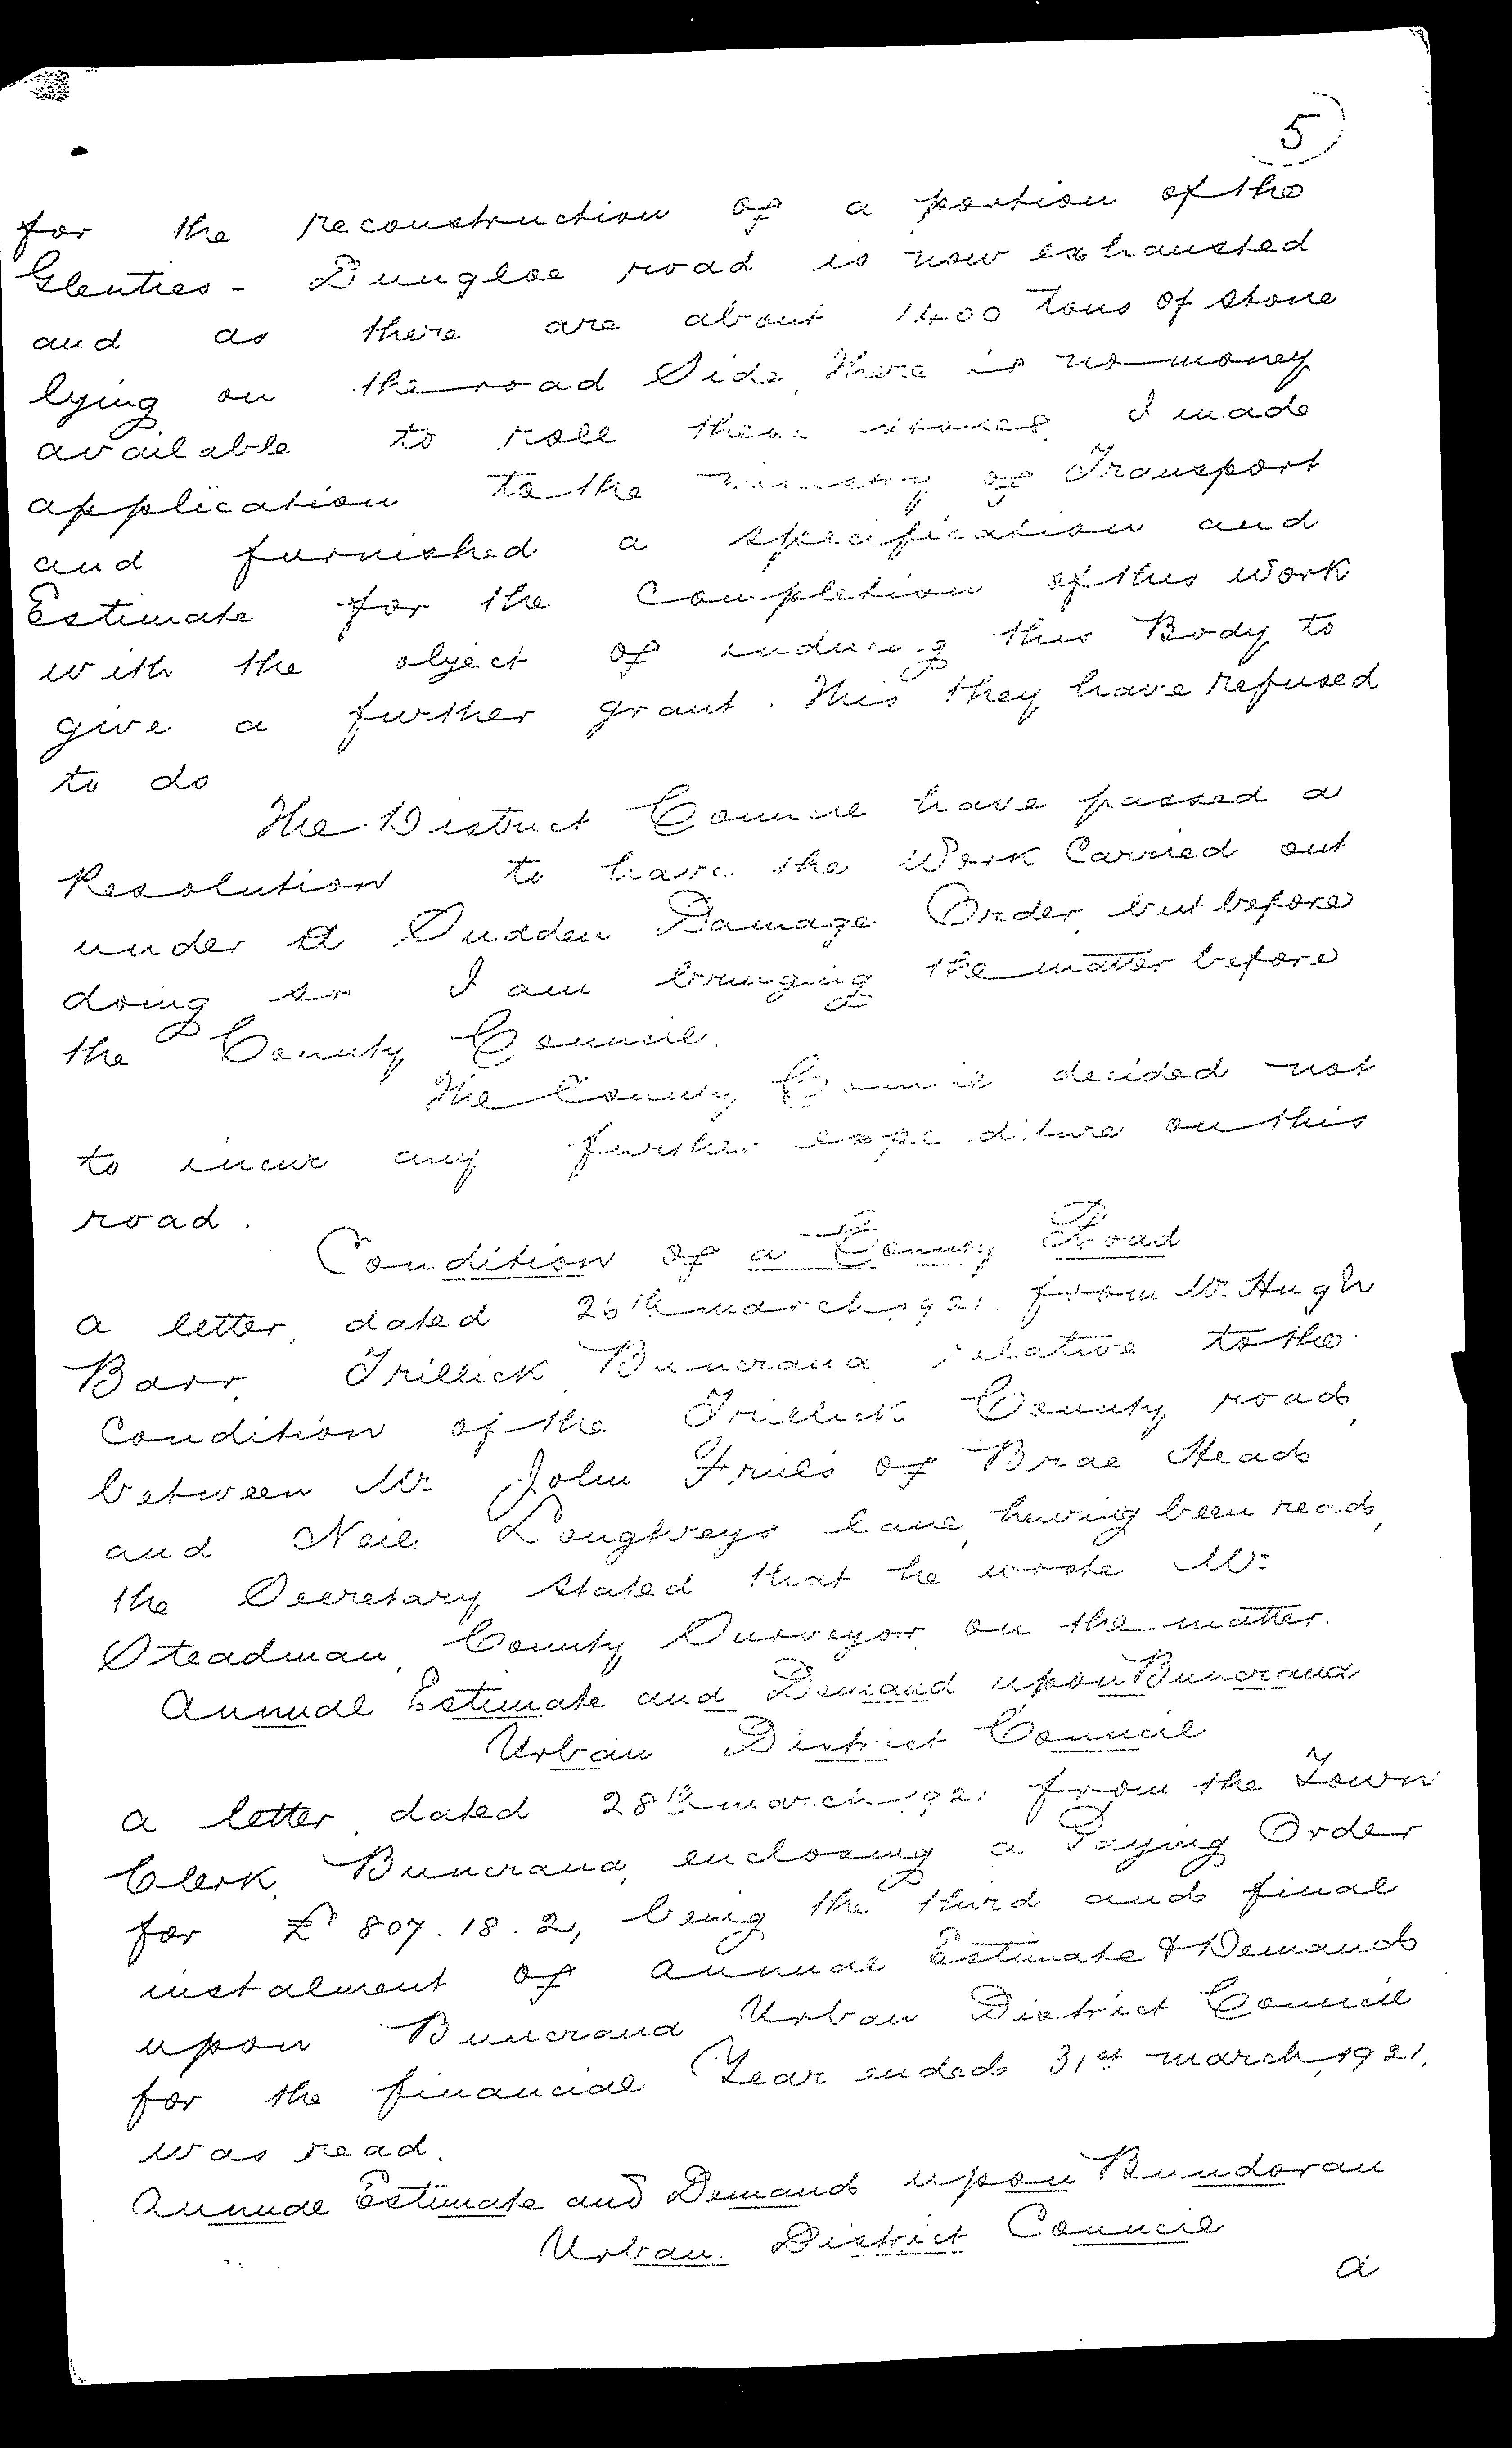 5
for the reconstruction of a portion of the
Glenties - Dungloe road is now exhausted
and as there are about 1400 Tons of stone
lying on the road Side, there is no money
available to roll these stones. I made
application to the Ministry of Transport
and furnished a specification and
Estimate for the Completion of this work
with the object of inducing this Body to
give a further grant. This they have refused
to do
The District Council have passed a
Resolution to have the Work Carried out
under a Sudden Damage Order, but before
doing so I am bringing the matter before
the County Council.
The County Council decided not
to incur any further expenditure on this
road.
Condition of a County Road
a letter, dated 26th march, 1921, from Mr. Hugh
Barr, Trillick, Buncrana, relative to the
Condition of the Trillick County road,
between Mr John Friels of Brae Head
and Neil Loughreys lane, having been read,
the Secretary stated that he wrote Mr.
Steadman, County Surveyor, on the matter.
Annual Estimate and Demand upon Buncrana
Urban District Council
a letter, dated 28th march, 1921, from the Town
Clerk, Buncrana, enclosing a Paying Order
for £807.18.2, being the third and final
instalment of annual Estimate & Demand
upon Buncrana Urban District Council
for the financial Year ended 31st march, 1921,
was read.
Annual Estimate and Demand upon Bundoran
Urban District Council
a